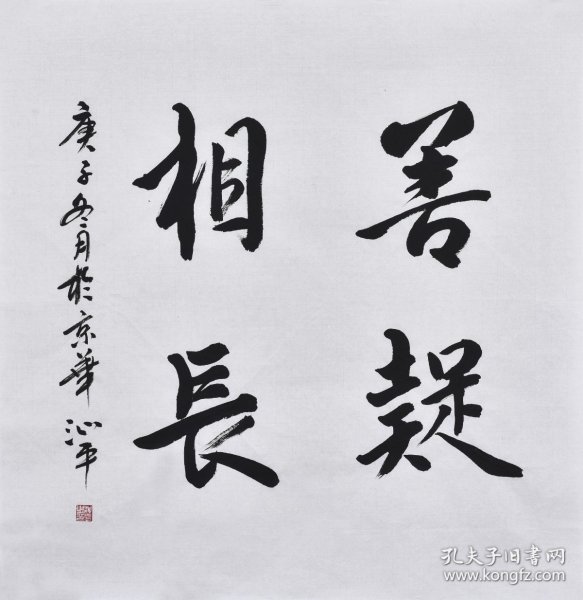 善疑
相長
庚子冬月於京華 平
孔夫子旧书网
www.kongfz.com